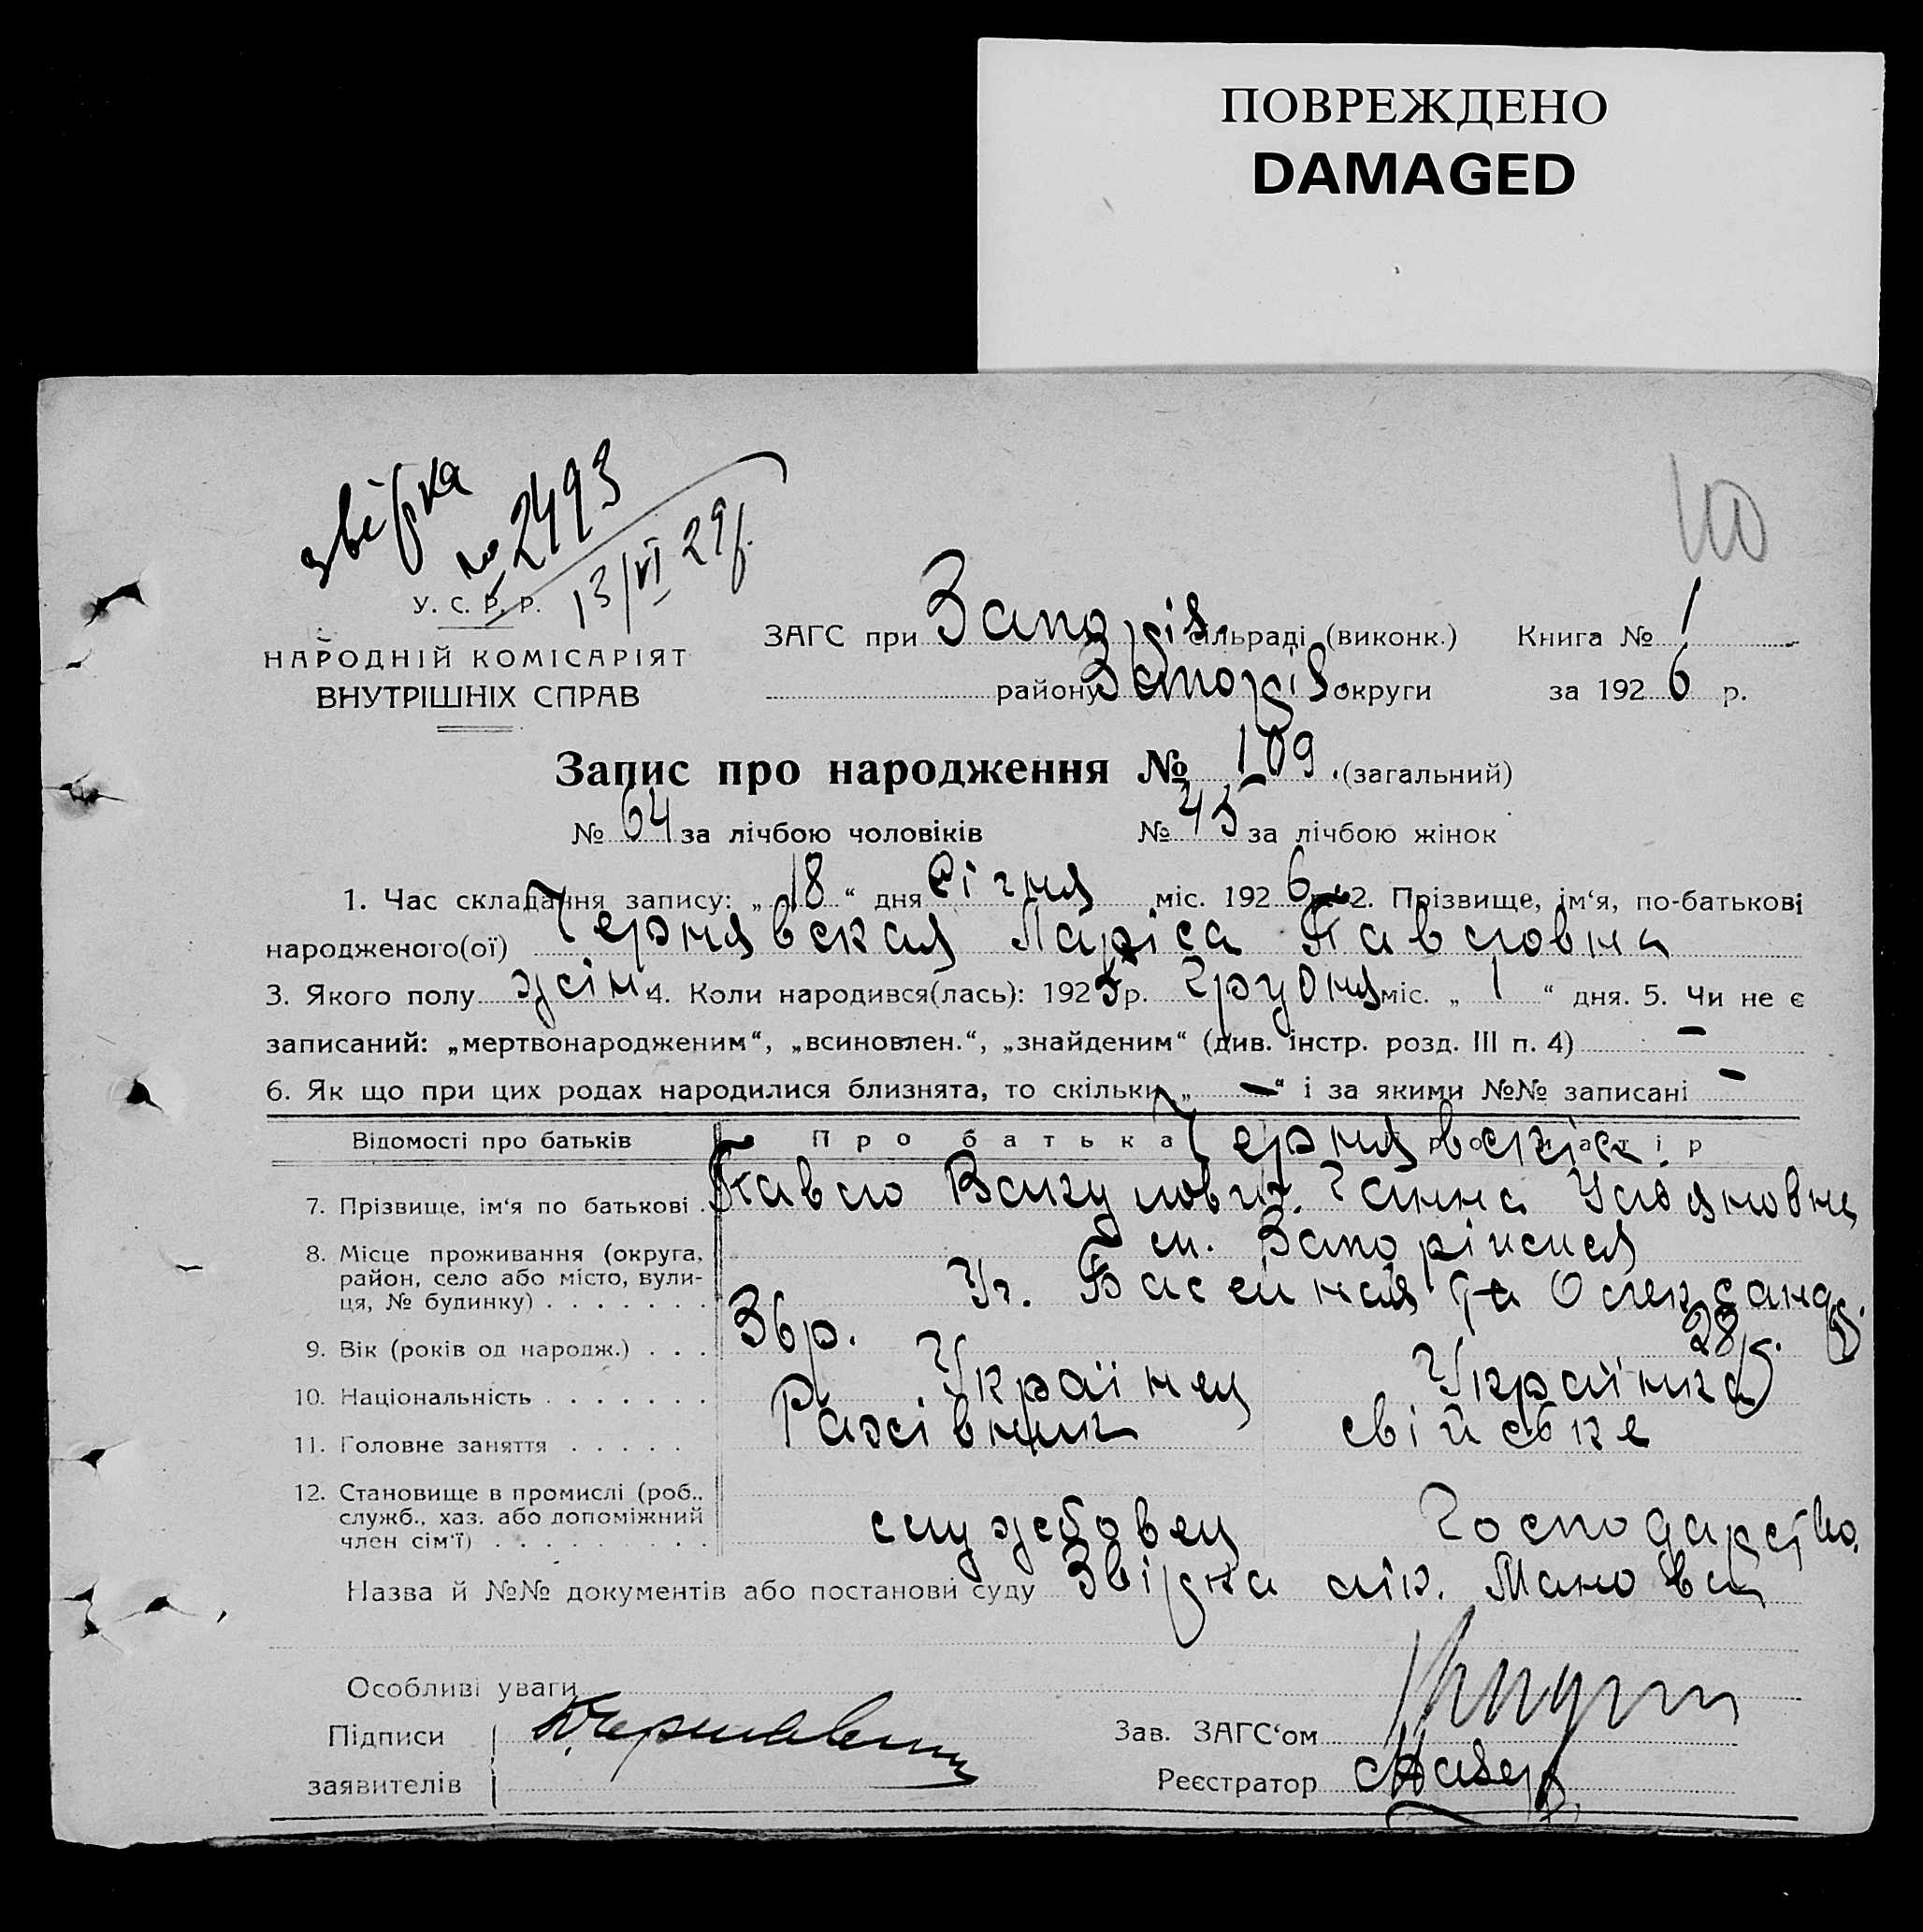 ПОВРЕЖДЕНО
DAMAGED
звірка
№ 2493
13/VI 29р.
У. С. Р. Р.
НАРОДНІЙ КОМІСАРІЯТ
ВНУТРІШНІХ СПРАВ
ЗАГС при Запоріз. сільраді (виконк.) Книга № 1
району Запоріз округи за 1926 р.
Запис про народження № 109 (загальний)
№ 64 за лічбою чоловіків № 45 за лічбою жінок
1. Час складання запису: „18“ дня січня міс. 1926 р. 2. Прізвище, ім‘я, по-батькові
народженого(ої) Чернявская Ларіса Павловна
3. Якого полу жін. 4. Коли народився(лась): 1925 р. Грудня міс. „1“ дня. 5. Чи не є
записаний: „мертвонародженим“, „всиновлен.“, „знайденим“ (див. інстр. розд. III п. 4) —
6. Як що при цих родах народилися близнята, то скільки „—“ і за якими №№ записані —
Відомості про батьків Про батька Про матір
Чернявскіє
7. Прізвище, ім‘я по батькові . Павло Ганна
8. Місце проживання (округа, м.
район, село або місто, вули-
ця, № будинку) . . . . . . . Уг. Басейная та Олександр.
9. Вік (років од народж.) . . . 36р. 28р.
10. Національність . . . . . . . Українец Українка
11. Головне заняття . . . . . Рахівник свійське
12. Становище в промислі (роб.,
служб., хаз. або допоміжний
член сім‘ї) . . . . . . . . . службовец Господарство.
Назва й №№ документів або постанови суду Звірка лік.
Особливі уваги
Підписи
заявителів
Зав. ЗАГС‘ом
Реєстратор